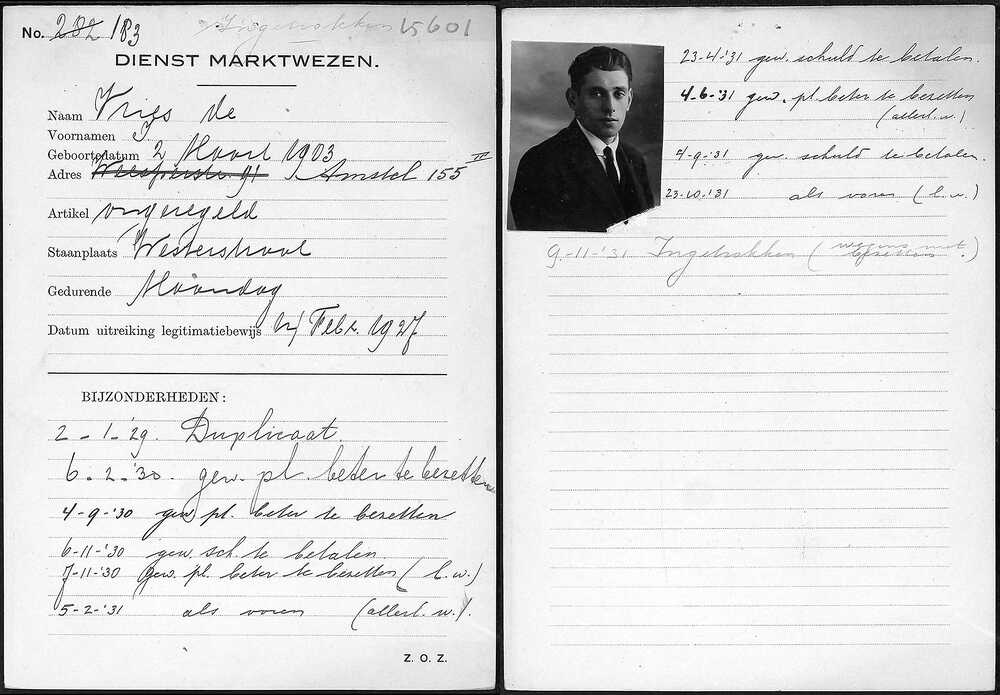 No. 282 183 Ingetrokken 15601
DIENST MARKTWEZEN.
Naam Vries de
Voornamen
Geboortedatum 2 Maart 1903
Adres Weesperstr. 91 Amstel 155 II
Artikel ongeregeld
Staanplaats Westerstraat
Gedurende Maandag
Datum uitreiking legitimatiebewijs 14 Febr. 1927
BIJZONDERHEDEN:
2-1-'29. Duplicaat.
6-2-'30. gew. pl. beter te bezetten
4-9-'30 gew. pl. beter te bezetten
6-11-'30 gew. sch. te betalen.
7-11-'30 gew. pl. beter te bezetten (l.w.)
5-2-'31 als voren (allerl. w.).
Z. O. Z.
23-4-'31 gew. schuld te betalen.
4-6-'31 gew. pl. beter te bezetten
(allerl. w.)
4-9-'31 gew. schuld te betalen.
23-10-'31 als voren (l.w.)
9-11-'31 Ingetrokken (wegens niet
bezetten.)